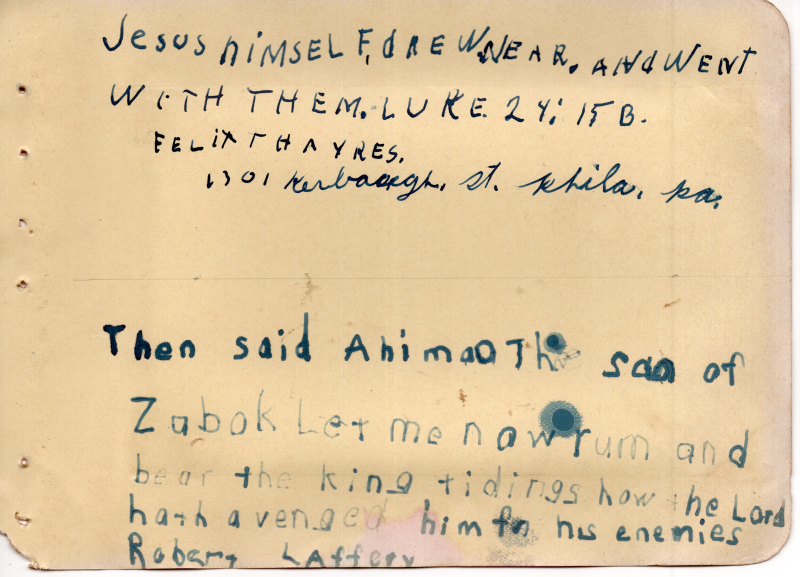 Jesus HIMSELF, dREW NEAR. ANd WENT
WITH THEM. LUKE 24: 15 B.
FELIX THAYRES.
1301 st. phila, pa.
Then said Ahimaath son of
Zabok Let me now rum and
bear the king tidings how the Lord
hath avenged him fn his enemies
Robert Laffery